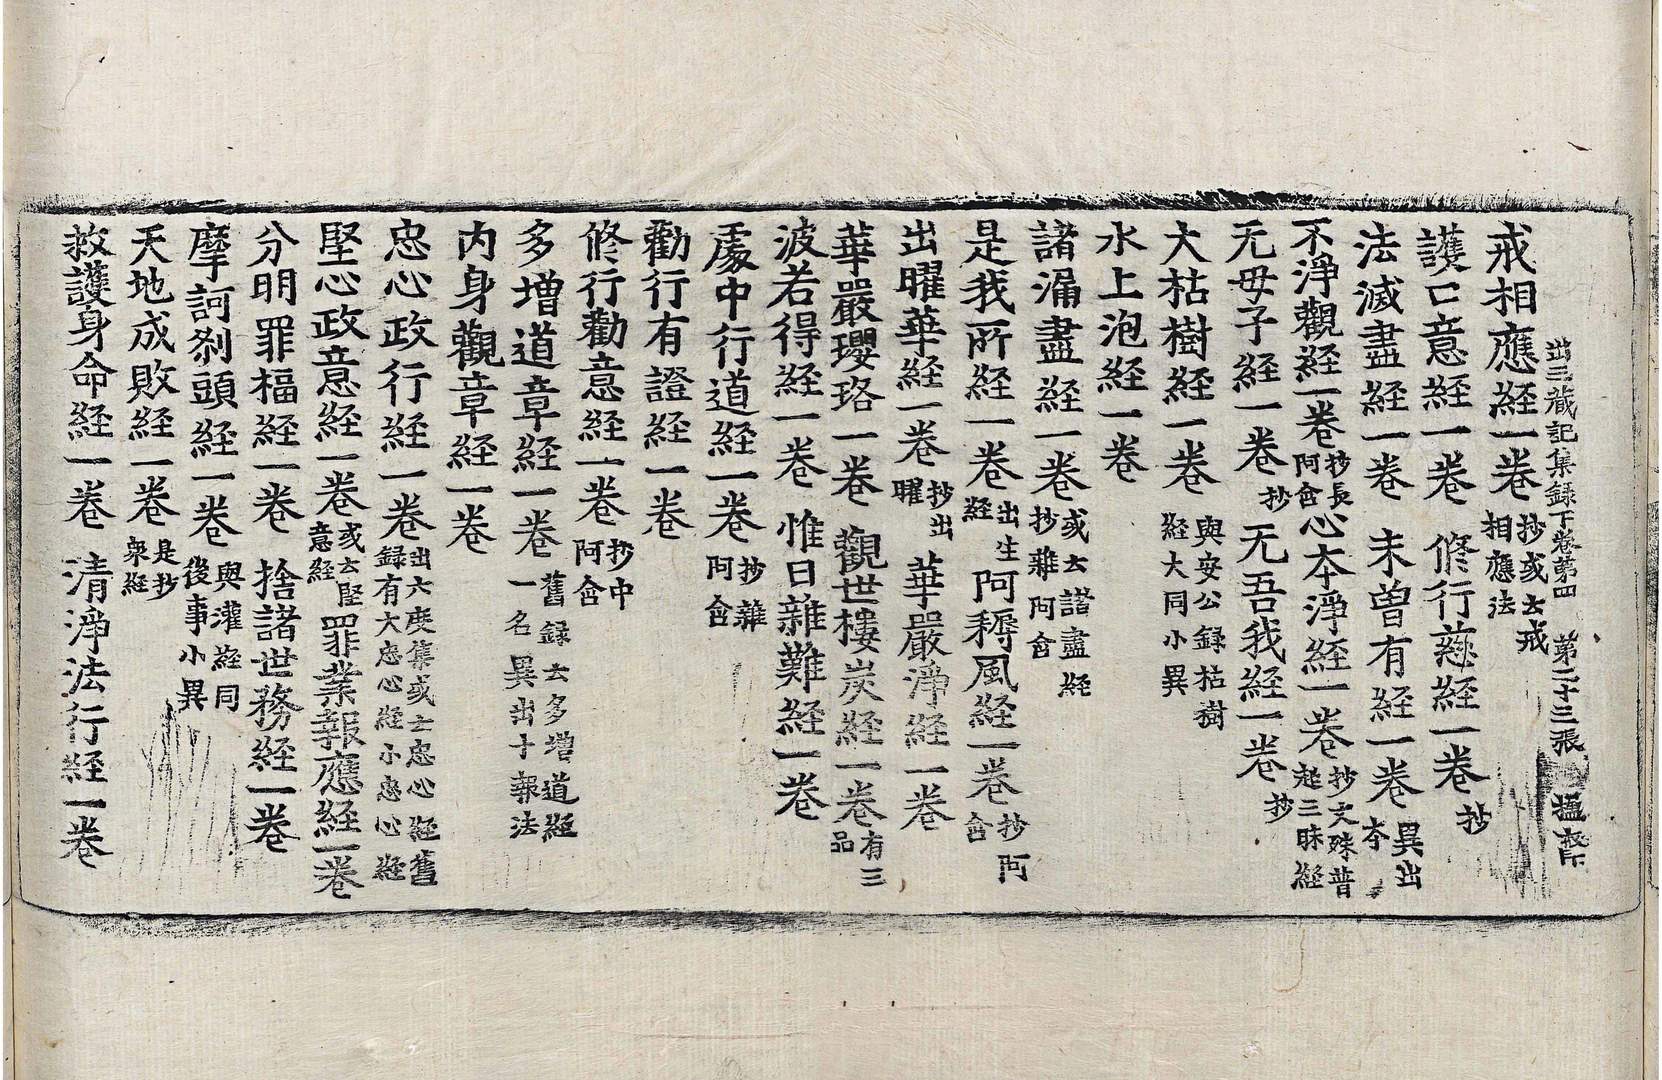 出三藏記集錄下卷第四 第二十三張 榲
戒相應経一卷 抄或云戒相應法
護口意経一卷 修行慈経一卷 抄
法滅盡経一卷 未曾有経一卷 異出夲
不淨觀経一卷 抄長阿含 心本淨経一卷 抄文殊普起三昧経
无母子経一卷 抄 无吾我経一卷 抄
大枯樹経一卷 與安公録枯樹経大同小異
水上泡経一卷
諸漏盡経一卷 或云諸盡経抄雜阿含
是我所経一卷 出生経 阿耨風経一卷 抄阿含
出曜華経一卷 抄出曜 華嚴淨経一卷
華嚴瓔珞一卷 觀世樓炭経一卷 有三品
波若得経一卷 惟日雜難経一卷
處中行道経一卷 抄雜阿含
勸行有證経一卷
修行勸意経一卷 抄中阿含
多增道章経一卷 舊録云多增道経一名異出十報法
内身觀章経一卷
忠心政行経一卷 出六度集或云忠心経舊録有大忠心経小忠心経
堅心政意経一卷 或云堅意経 罪業報應経一卷
分明罪福経一卷 捨諸世務経一卷
摩訶刹頭経一卷 與灌経同後事小異
天地成敗経一卷 是抄衆経
救護身命経一卷 清淨法行経一卷